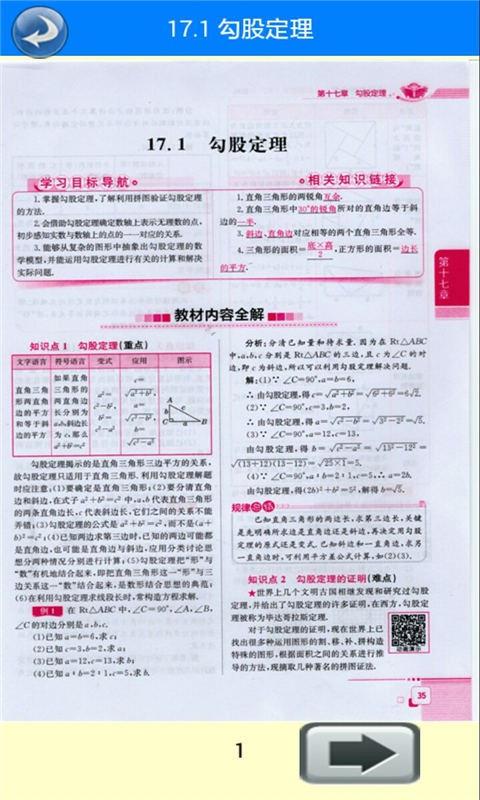 17.1 勾股定理
第十七章 勾股定理
17.1 勾股定理
学习目标导航
1.掌握勾股定理,了解利用拼图验证勾股定理
的方法.
2.会借助勾股定理确定数轴上表示无理数的点,
初步感知实数与数轴上的点的一一对应的关系.
3.能够从复杂的图形中抽象出勾股定理的数
学模型,并能运用勾股定理进行有关的计算和解决
实际问题.
相关知识链接
1.直角三角形的两锐角互余.
2.直角三角形中30°的锐角所对的直角边等于斜
边的一半.
3.斜边、直角边对应相等的两个直角三角形全等.
4.三角形的面积=底×高/2,正方形的面积=边长
的平方.
第十七章
教材内容全解
知识点1 勾股定理(重点)
文字语言 符号语言 变式 应用 图示
直角三角
形两直角
边的平方
和等于斜
边的平方
如果直角
三角形的
两直角边
长分别为
a、b,斜边长
为c,那么
a²+b²=c²
a²=
c²-b²,
b²=
c²-a²
c=
√a²+b²,
a=
√c²-b²,
b=
√c²-a²
A
b c
C a B
勾股定理揭示的是直角三角形三边平方的关系,
故勾股定理只适用于直角三角形.利用勾股定理解题
时应注意:(1)要确定是直角三角形;(2)要分清直角
边和斜边,在式子a²+b²=c²中,a、b代表直角三角形
的两条直角边长,c代表斜边长,它们之间的关系不能
弄错;(3)勾股定理的公式是a²+b²=c²,而不是(a+
b)²=c²;(4)已知两边求第三边时,已知的两边可能都
是直角边,也可能是直角边与斜边,应用分类讨论思
想分两种情况分别进行计算;(5)勾股定理把“形”与
“数”有机地结合起来,即把直角三角形这一“形”与三
边关系这一“数”结合起来,是数形结合思想的典范;
(6)在利用勾股定理求线段长时,常构造方程求解.
例1 在Rt△ABC中,∠C=90°,∠A、∠B、
∠C的对边分别是a、b、c.
(1)已知a=b=6,求c;
(2)已知c=3,b=2,求a;
(3)已知a=12,c=13,求b;
(4)已知a:b=2:1,c=5,求b.
分析:分清已知量和待求量.因为在Rt△ABC
中,a、b、c分别是Rt△ABC的三边,且c为∠C的对
边,即c为斜边,所以可以利用勾股定理解决问题.
解:(1)∵∠C=90°,a=b=6,
∴由勾股定理,得c=√a²+b²=√6²+6²=6√2.
(2)∵∠C=90°,c=3,b=2,
∴由勾股定理,得a=√c²-b²=√3²-2²=√5.
(3)∵∠C=90°,a=12,c=13,
由勾股定理,得b=√c²-a²=√13²-12²=
√(13+12)(13-12)=√25×1=5.
(4)∵∠C=90°,a:b=2:1,c=5,∴a=2b,
由勾股定理,得(2b)²+b²=5²,解得b=√5.
规律总结
已知直角三角形的两边长,求第三边长,关键
是先明确所求边是直角边还是斜边,再决定用勾股
定理的原式还是变式.已知斜边和一直角边,求另
一直角边时,可利用平方差公式计算,如(2)(3).
知识点2 勾股定理的证明(难点)
★世界上几个文明古国相继发现和研究过勾股
定理,并给出了勾股定理的许多证明,在西方,勾股定
理被称为毕达哥拉斯定理.
对于勾股定理的证明,现在世界上已
找出很多种运用图形的割、移、补、拼构造
特殊的图形,根据面积之间的关系进行推
导的方法,现摘取几种著名的拼图证法.
动画演示
35
1